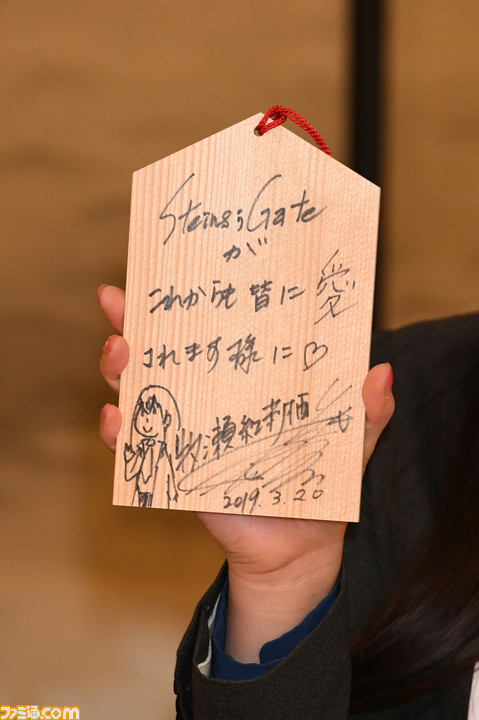 Steins;Gate
が
これからも皆に愛
されます様に♡
牧瀬紅莉栖
2019.3.20
ファミ通.com